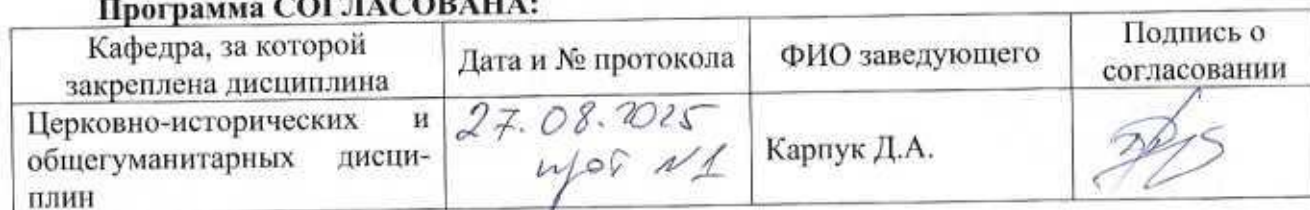 Программа СОГЛАСОВАНА:
Кафедра, за которой
закреплена дисциплина
Дата и № протокола
ФИО заведующего
Подпись о
согласовании
Церковно-исторических и
общегуманитарных дисци-
плин
27.08.2025
прот №1
Карпук Д.А.